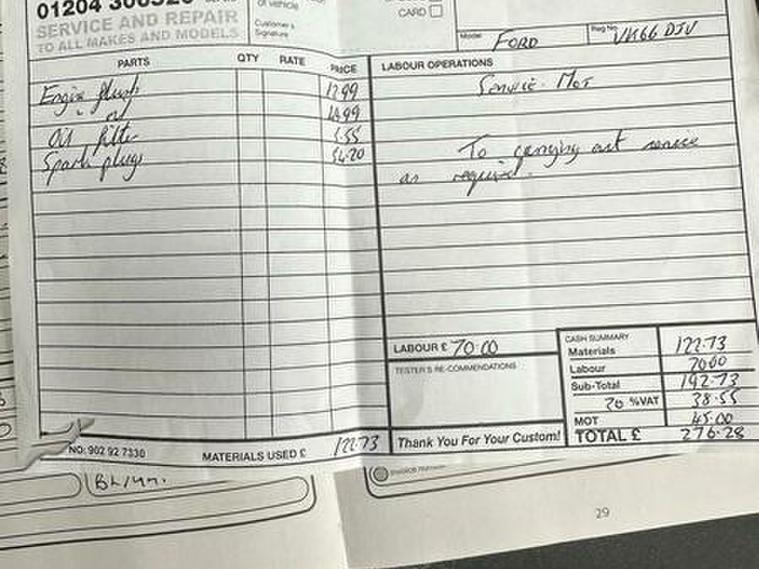 01204
SERVICE AND REPAIR
TO ALL MAKES AND MODELS
of vehicle
Customer's
Signature
CARD
Model FORD
Reg No. VK66 DJV
PARTS QTY RATE PRICE
LABOUR OPERATIONS
Engine flush 12.99
" oil
Oil filter
Spark plugs 54.20
Service. MoT
To carrying out service
as required.
LABOUR £ 70.00
TESTER'S RE-COMMENDATIONS
CASH SUMMARY
Materials 122.73
Labour 70.00
Sub-Total 192.73
20 %VAT 38.55
MOT 45.00
TOTAL £ 276.28
NO: 902 92 7330
MATERIALS USED £ 122.73
Thank You For Your Custom!
29